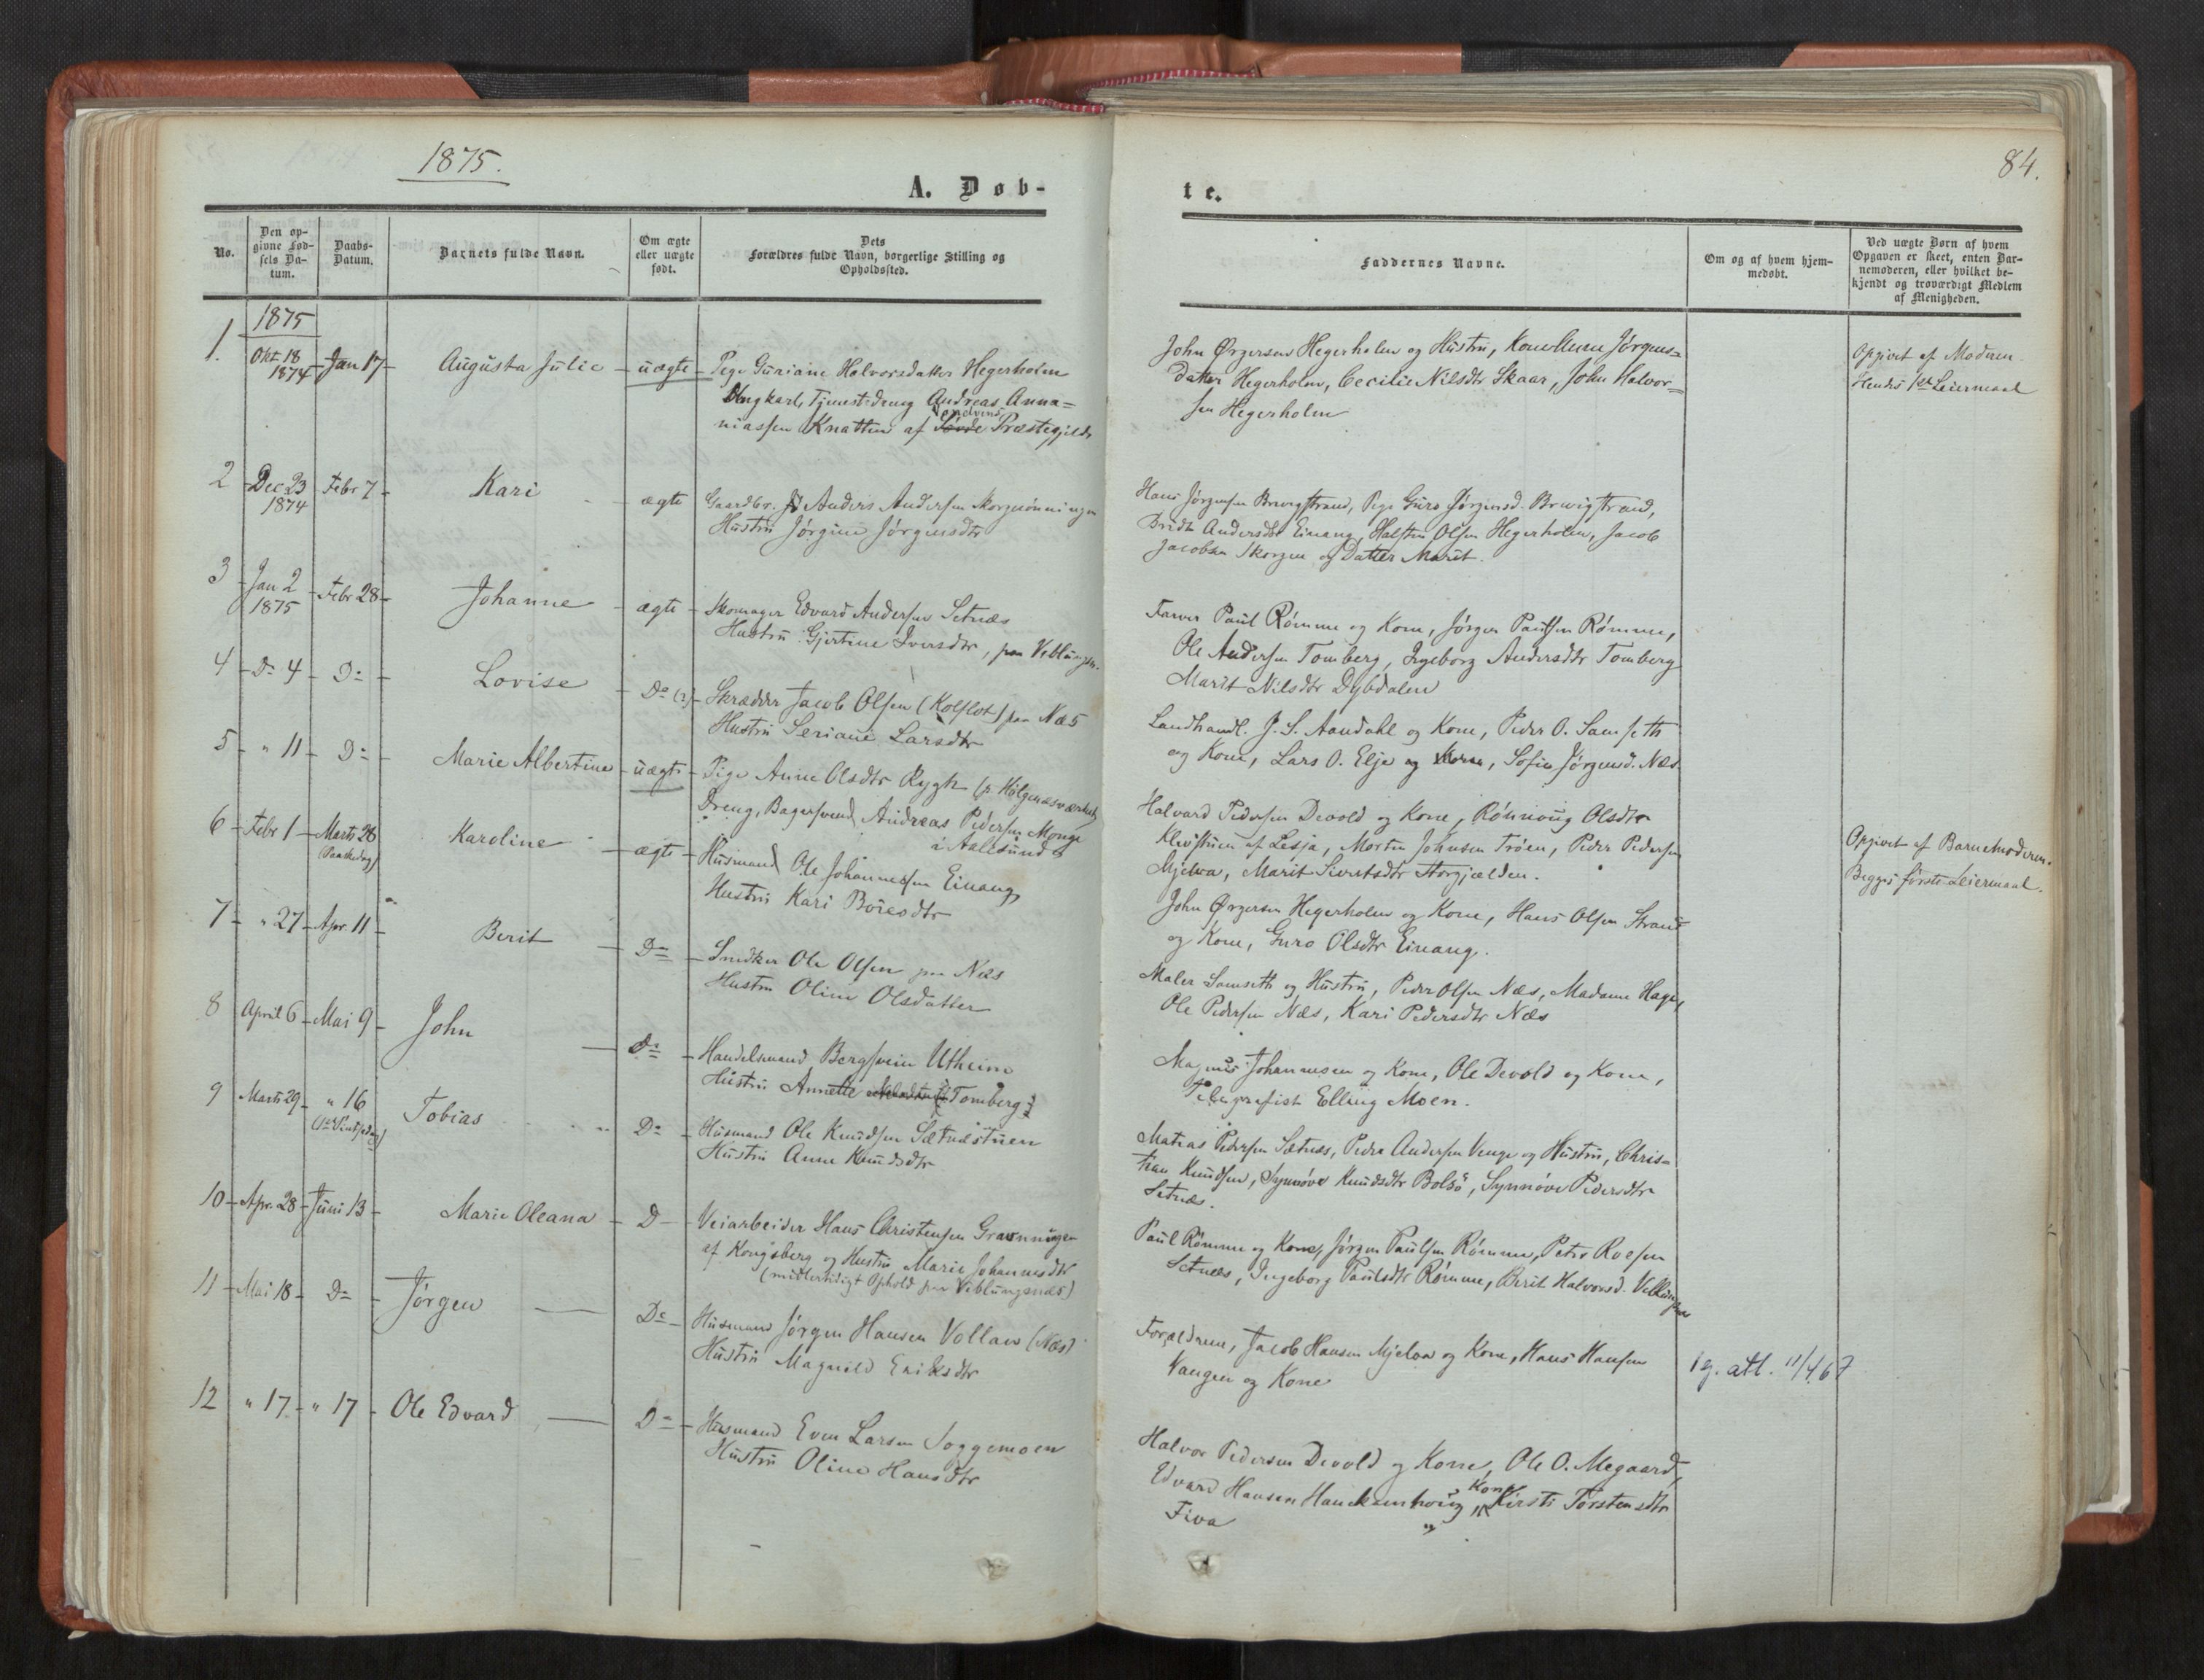 1875.
A. Døb-
No.
Den op-
givne Fød-
sels Da-
tum.
Daabs-
Datum.
Barnets fulde Navn.
Om ægte
eller uægte
født.
Dets
Forældres fulde Navn, borgerlige Stilling og
Opholdssted.
1875
1. Okt 18 1874 Jan 17 Augusta Julie uægte Pige Guriane Halvorsdatter Hegerholm
Ungkarl, Tjenestedreng Andreas Anna=
niassen Knatten af Præstegjeld
2 Dec 23 1874 Febr 7 Kari ægte Gaardbr. Anders Andersen
Hustru Jørgine Jørgensdtr
3 Jan 2 1875 Febr 28 Johanne ægte Skomager Edvard Andersen Setnæs
Hustru Gjertine Iversdtr, paa Veblungsn.
4 Do 4 Do Lovise Do (?) Skrædder Jacob Olsen (Kolflot) paa Næs
Hustru Seriane Larsdtr
5 " 11 Do Marie Albertine uægte Pige Anne Olsdtr Rygh
Dreng, Bagersvend Andreas Pedersen Monge
i Aalesund
6 Febr 1 Marts 28 (Paaskedag) Karoline ægte Husmand Ole Johannessen Einang
Hustru Kari Boiesdtr
7 " 27 Apr. 11 Berit Do Snedker Ole Olsen paa Næs
Hustru Oline Olsdatter
8 April 6 Mai 9 John Do Handelsmand Bergsvein Utheim
Hustru Annette Tomberg
9 Marts 29 " 16 (1ste Pintsedag) Tobias Do Husmand Ole Knudsen Sætnæstuen
Hustru Anne Knudsdtr
10 Apr. 28 Juni 13 Marie Oleana D Veiarbeider Hans Christensen Gravningen
af Kongsberg og Hustru Marie Johannesdtr
(midlertidigt Ophold paa Veblungsnæs)
11 Mai 18 Do Jørgen Do Husmand Jørgen Hansen Vollan (Næs)
Hustru Magnild Eriksdtr
12 " 17 " 17 Ole Edvard Do Husmand Even Larsen Soggemoen
Hustru Oline Hansdtr
84.
te.
Faddernes Navne.
Om og af hvem hjem-
medøbt.
Ved uægte Børn af hvem
Opgaven er skeet, enten Bar-
nemoderen, eller hvilket be-
kjendt og troværdigt Medlem
af Menigheden.
John Ørgersen Hegerholm og Hustru, Kone Anne Jørgens=
datter Hegerholm, Cecilie Nilsdtr Skaar, John Halvor=
sen Hegerholm
Opgivet af Moderen.
Hendes 1ste Leiermaal
Hans Jørgensen Brevigstrand, Pige Guro Jørgensd. Brevigstrand,
Andersdtr Einang, Halsten Olsen Hegerholm, Jacob
Jacobsen Skorgen og Datter Marit.
Farver Paul Rømme og Kone, Jørgen Paulsen Rømme,
Ole Andersen Tomberg, Ingeborg Andersdtr Tomberg
Marit Nilsdtr Dybdalen
Landhandl. J. S. Aandahl og Kone, Peder O. Samseth
og Kone, Lars O. Elje og Kone, Sofie Jørgensd. Næs
Halvard Pedersen Devold og Kone, Rønnoug Olsdtr
af Lesja, Morten Johnsen Trøen, Peder Pedersen
Mjelva, Marit Sivertsdtr Storgjælden.
Opgivet af Barnemoderen.
Begges første Leiermaal.
John Ørgersen Hegerholm og Kone, Hans Olsen Strand
og Kone, Guro Olsdtr Einang.
Maler Samseth og Hustru, Peder Olsen Næs, Madame Hagen,
Ole Pedersen Næs, Kari Pedersdtr Næs
Magnus Johannesen og Kone, Ole Devold og Kone,
Telegrafist Elling Moen.
Matias Pedersen Sætnæs, Peder Andersen Venge og Hustru, Chris=
tian Knudsen, Synnøve Knudsdtr Bolsø, Synnøve Pedersdtr
Setnæs.
Paul Rømme og Kone, Jørgen Paulsen Rømme, Peter Roesen
Setnæs, Ingeborg Paulsdtr Rømme, Berit Halvorsd. Veblungsnæs
Forældrene, Jacob Hansen Mjelva og Kone, Hans Hansen
Vangen og Kone
1 g. att. 11/4 67
Halvor Pedersen Devold og Kone, Ole O. Megaard,
Edvard Hansen og Kone Kirsti Torstensdtr
Fiva